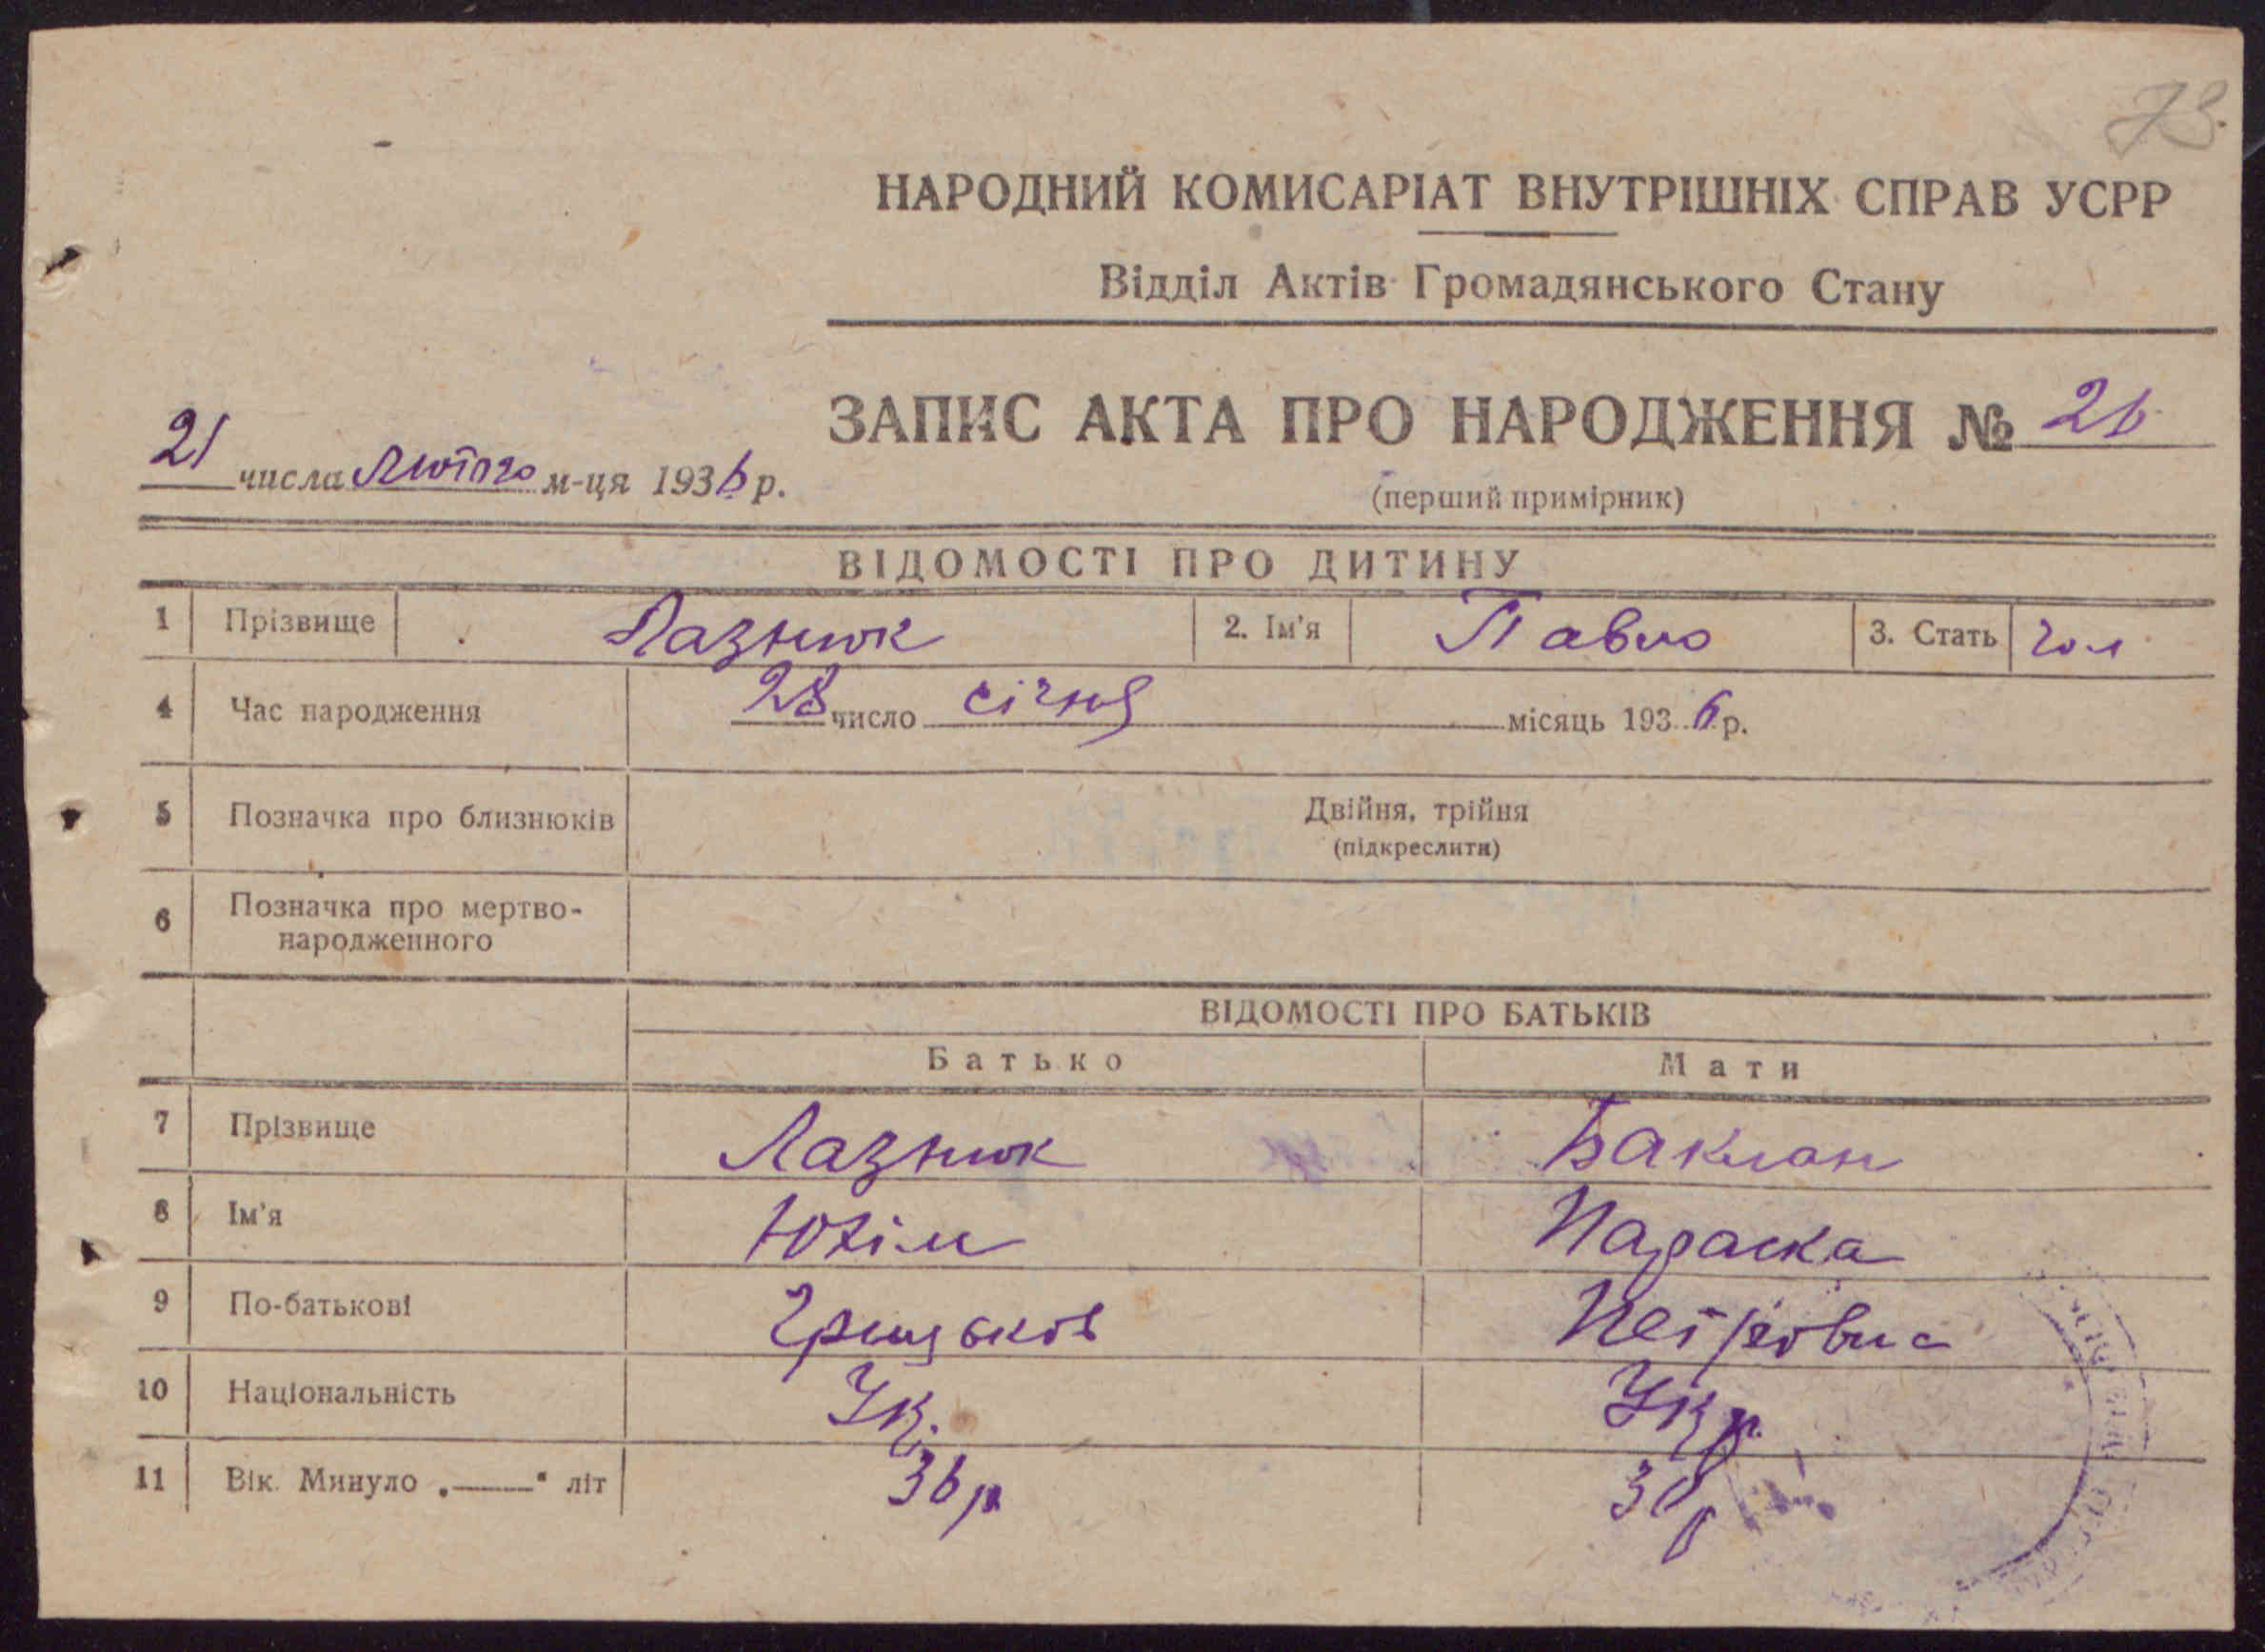 73.
НАРОДНИЙ КОМИСАРІАТ ВНУТРІШНІХ СПРАВ УСРР
Відділ Актів Громадянського Стану
ЗАПИС АКТА ПРО НАРОДЖЕННЯ № 26
21 числа Лютого м-ця 1936 р.
(перший примірник)
ВІДОМОСТІ ПРО ДИТИНУ
1 Прізвище Лазнюк 2. Ім'я Павло 3. Стать чол
4 Час народження 28 число січня місяць 1936 р.
5 Позначка про близнюків Двійня, трійня
(підкреслити)
6 Позначка про мертво-
народженного
ВІДОМОСТІ ПРО БАТЬКІВ
Батько Мати
7 Прізвище Лазнюк Баклан
8 Ім'я Юхім Параска
9 По-батькові Грицьков Петровна
10 Національність Ук. Укр.
11 Вік. Минуло „ — “ літ 36 р 30 р